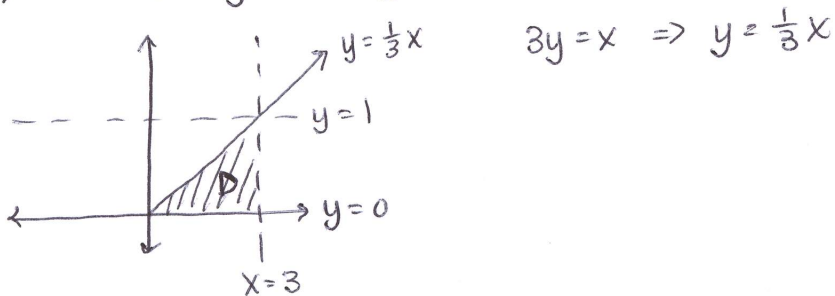 y = 1/3 x
3y = x => y = 1/3 x
y = 1
D
y = 0
x = 3